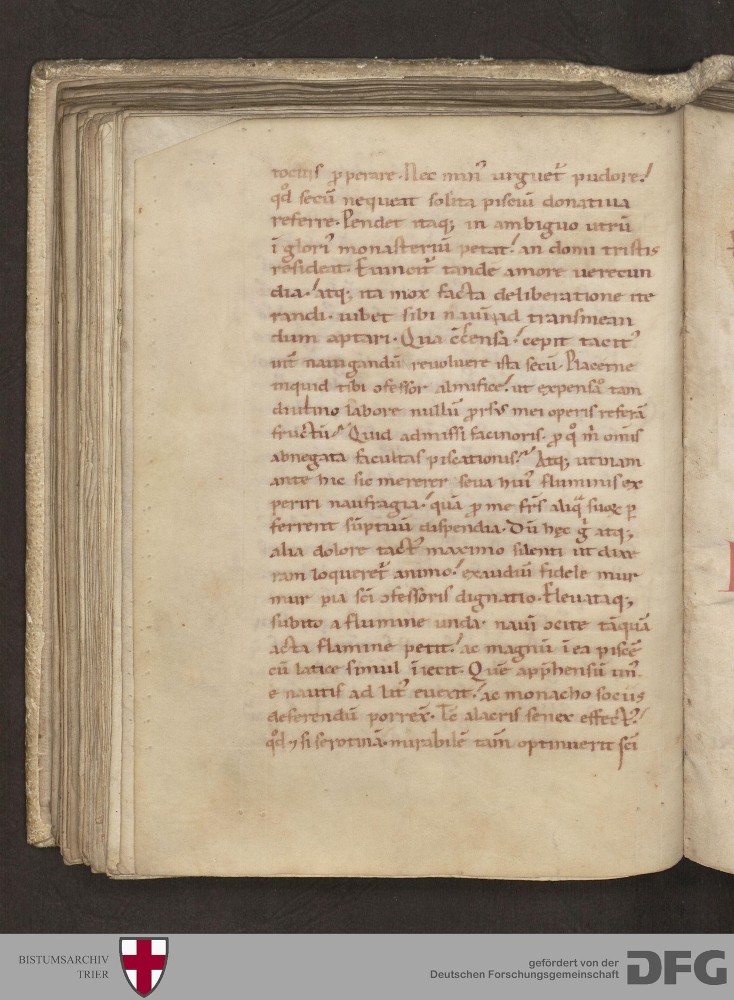 tociuſ ꝓperare. Nec min᾽ urguet᷑ pudore!
qd̕ ſecū nequeat ſolita piſciū donatiua
referre. Pendet itaq; in ambiguo utrū
ī glori᾽ monaſteriū petat! an domi triſtis
reſideat. Euincit᷑ tandē amore uerecun
dia! atq; ita mox facta deliberatione ite
randi. iubet ſibi nauī ad tranſmean
dum aptari. Qua cſcenſa! cepit tacit᾽
int̕ nauigandū reuoluere iſta ſecū. Placetne
inquid tibi ↄfeſſor almifice! ut expenſo tam
diutino labore nullū ꝓrſis mei operis referā
fructū? Quid admiſſi facinoris. ꝓ qͦ m̄ om̄is
abnegata facultaſ piſcationiſ? Atq; utinam
ante hic ſic mererer ſeua hui᾽ fluminiſ ex
periri naufragia! quā ꝓ me fr̄s aliqͣ ſuoꝝ ꝑ
ferrent ſūptuū diſpendia. Dū hęc g̕ atq;
alia dolore tact᾽ maximo ſilenti ut dixe
ram loqueret᷑ animo! exaudiuī fidele mur
mur pia ſc̄i ↄfeſſoris dignatio. Eleuataq;
ſubito a flumine unda. nauī ocite tāquā
acta flamine petit! ac magnū ī ea piſcē
cū latice ſimul īiecit. Quē app̄henſū un᾽
e nautis ad lit᾽ euexit! ac monacho ſociis
deferendū porrex̄. Tc̄ alacris ſenex effect᾽!
qd̕ ⁊ ſi ſerotinā. mirabilē tam̄ optinuerit ſc̄i
BISTUMSARCHIV
TRIER
gefördert von der
Deutschen Forschungsgemeinschaft
DFG